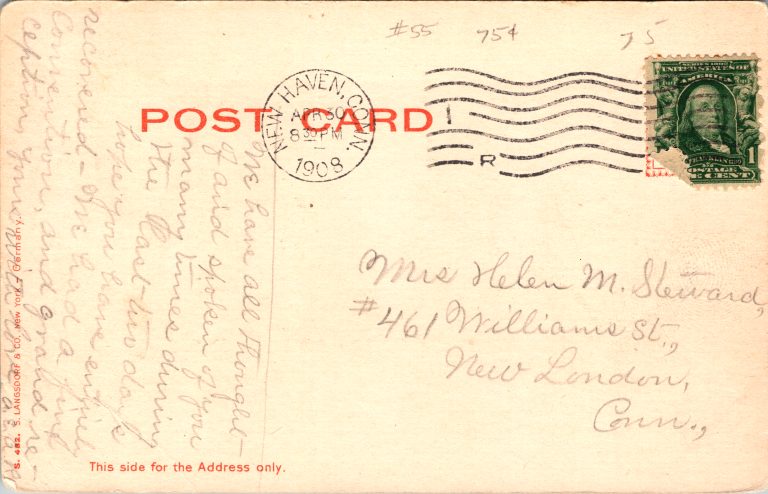 #55 75¢ 75
POST CARD
NEW HAVEN, CONN.
APR 30
8 30 PM
1908
I
R
SERIES 1902
UNITED STATES OF
AMERICA
FRANKLIN
POSTAGE
1 CENT
Mrs Helen M. Steward,
#461 Williams St.,
New London,
Conn.,
We have all thought
of and spoken of you
many times during
the last two days
hope you have entirely
recovered - We had a fine
Convention, and grand re-
ception. Yours with love
S. 482. S. LANGSDORF & CO., NEW YORK. Germany.
This side for the Address only.